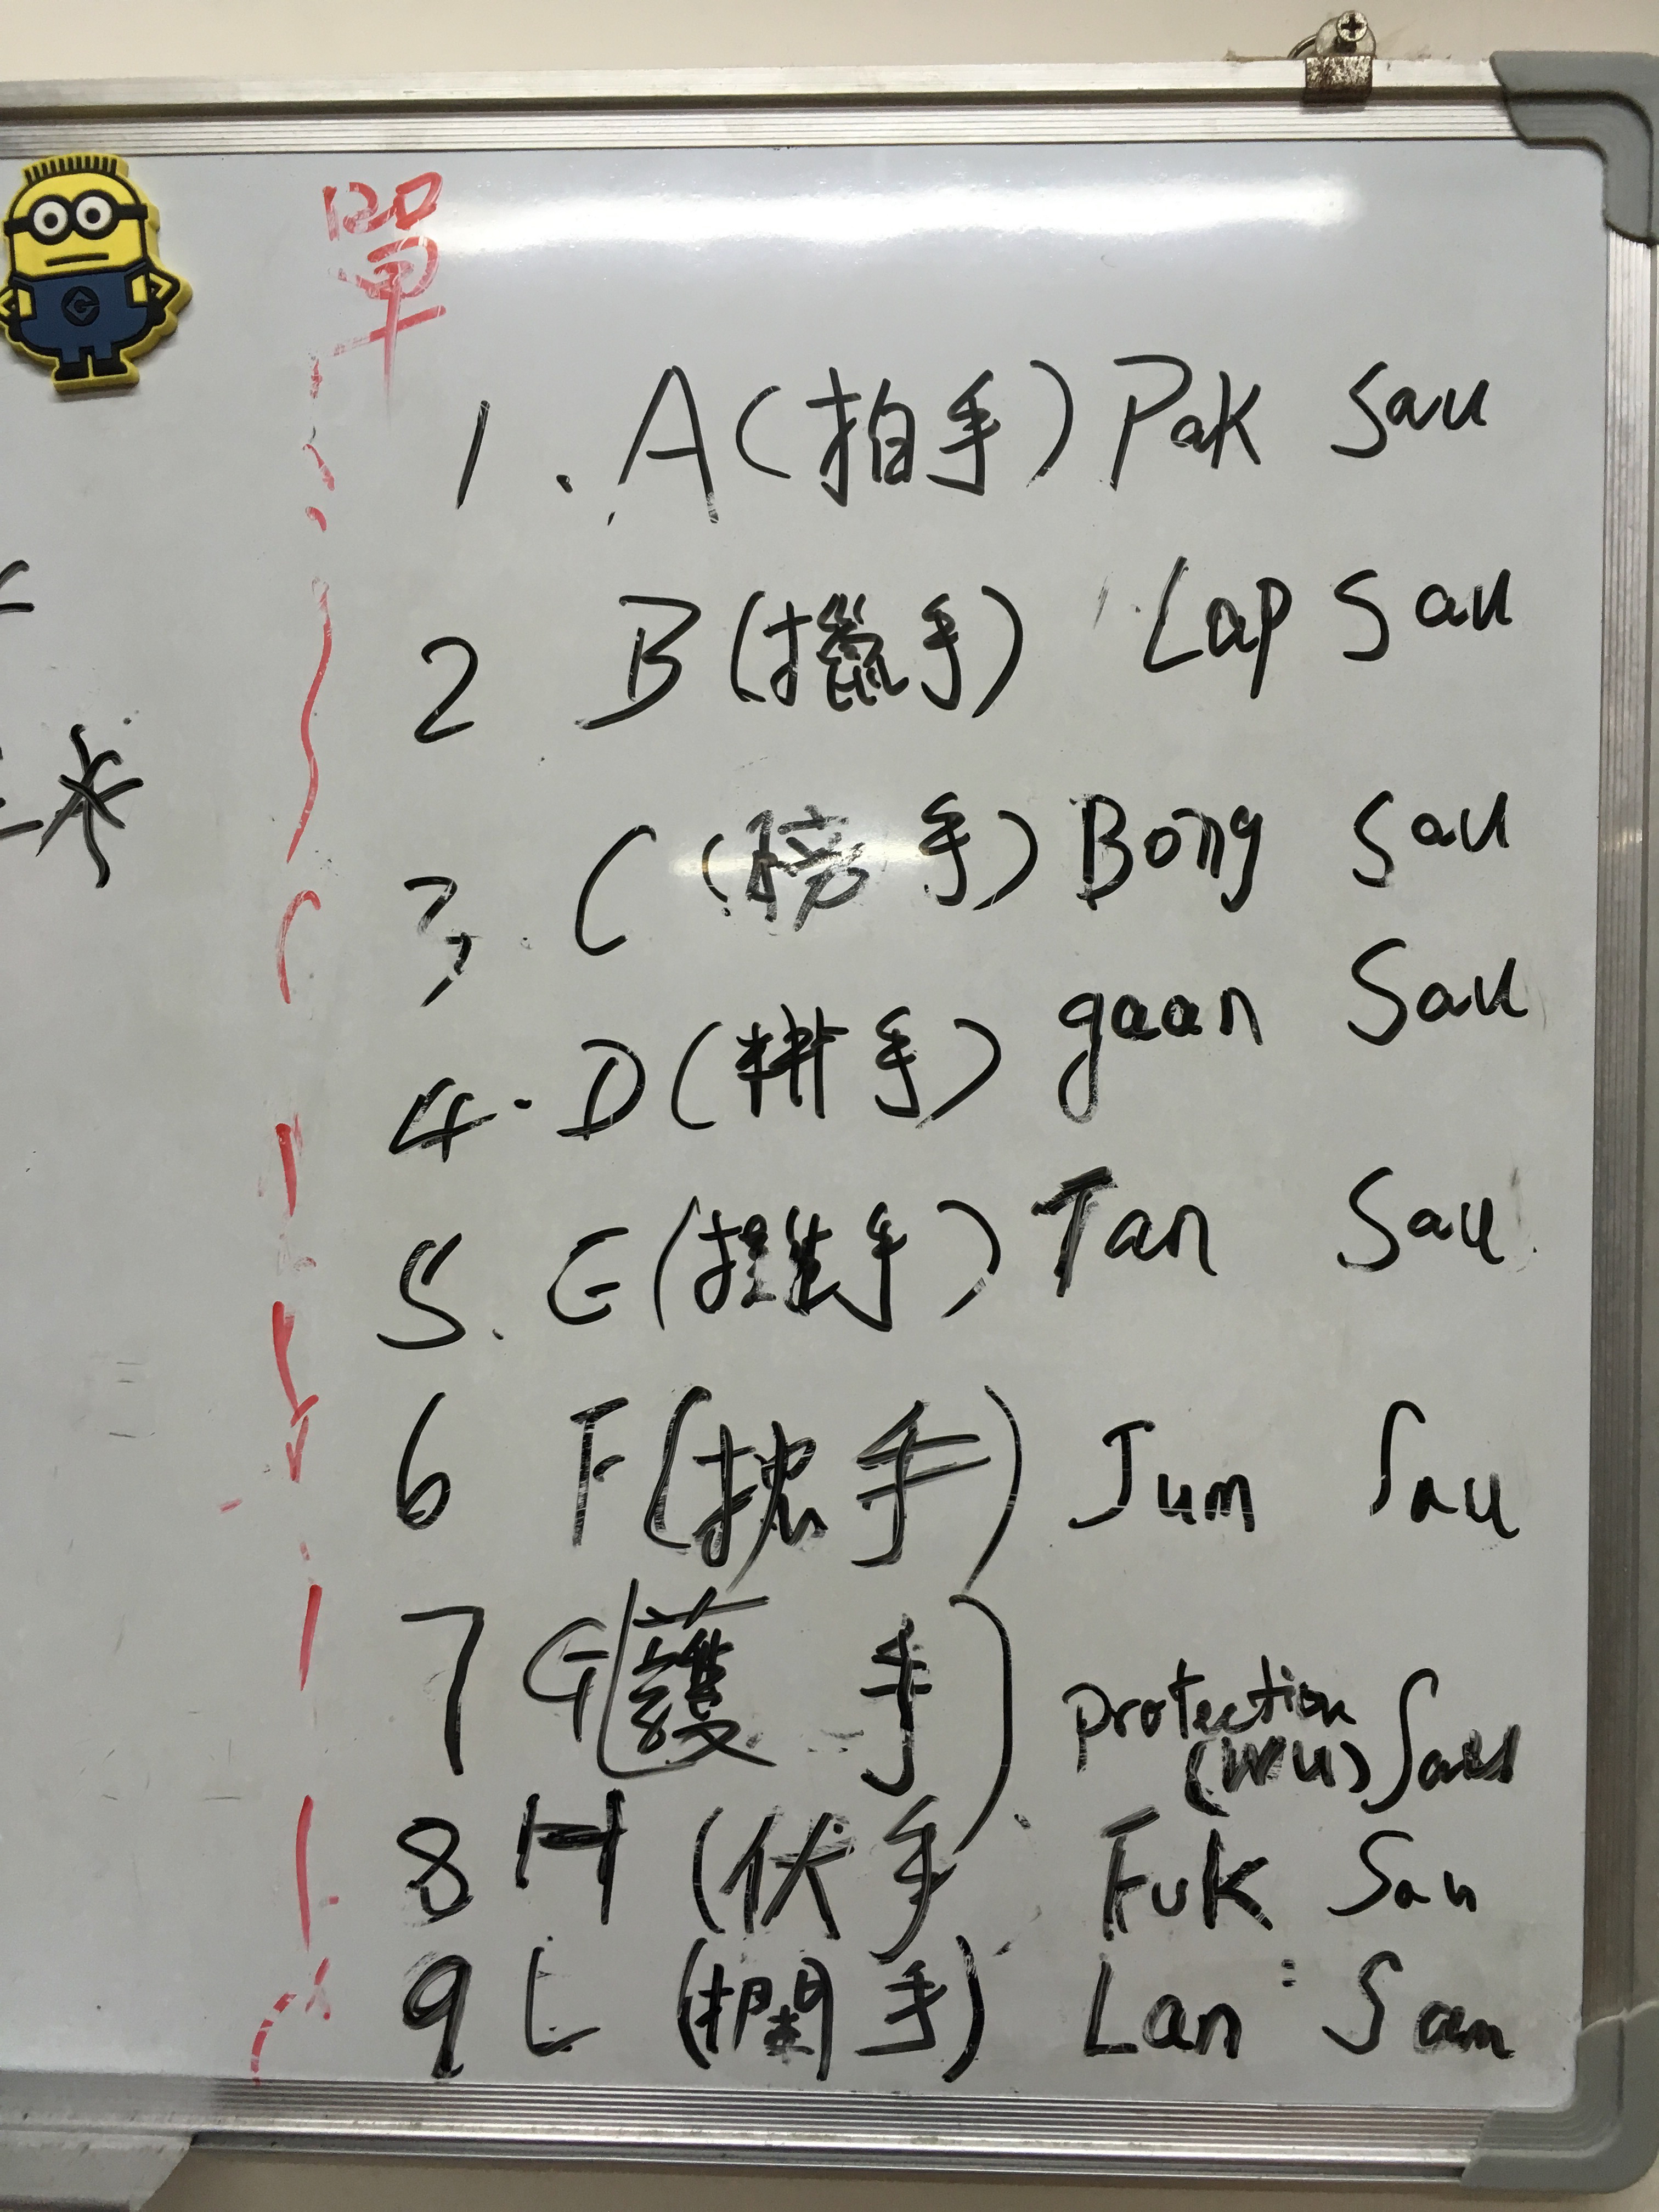 單
1. A (拍手) Pak Sau
2 B (擸手) Lap Sau
3. C (膀手) Bong Sau
4. D (耕手) gaan Sau
5. E (手) Tan Sau
6 F (手) Jum Sau
7 G (護手) protection (Wu) Sau
8 H (伏手 Fuk Sau
9 L (攔手) Lan Sau